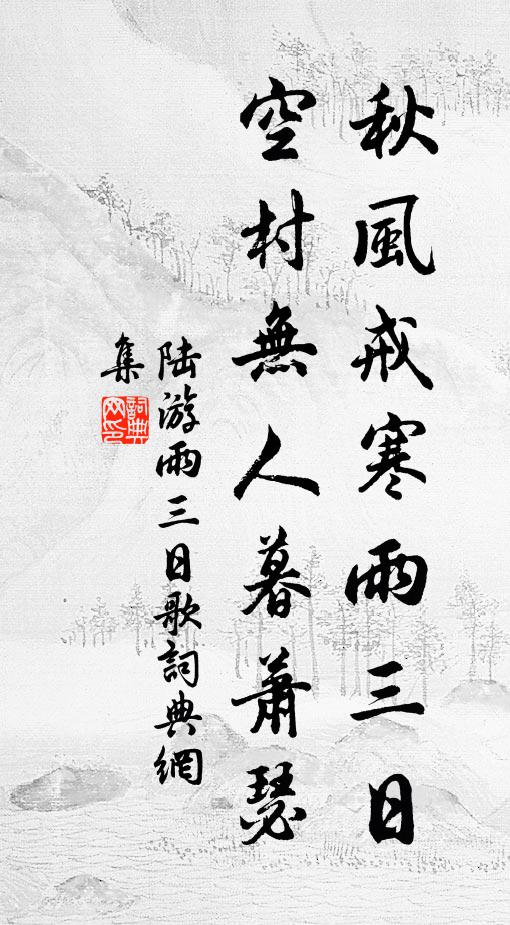 秋風戒寒雨三日
空村無人暮蕭瑟
陆游雨三日歌詞典網
集
詞典网印